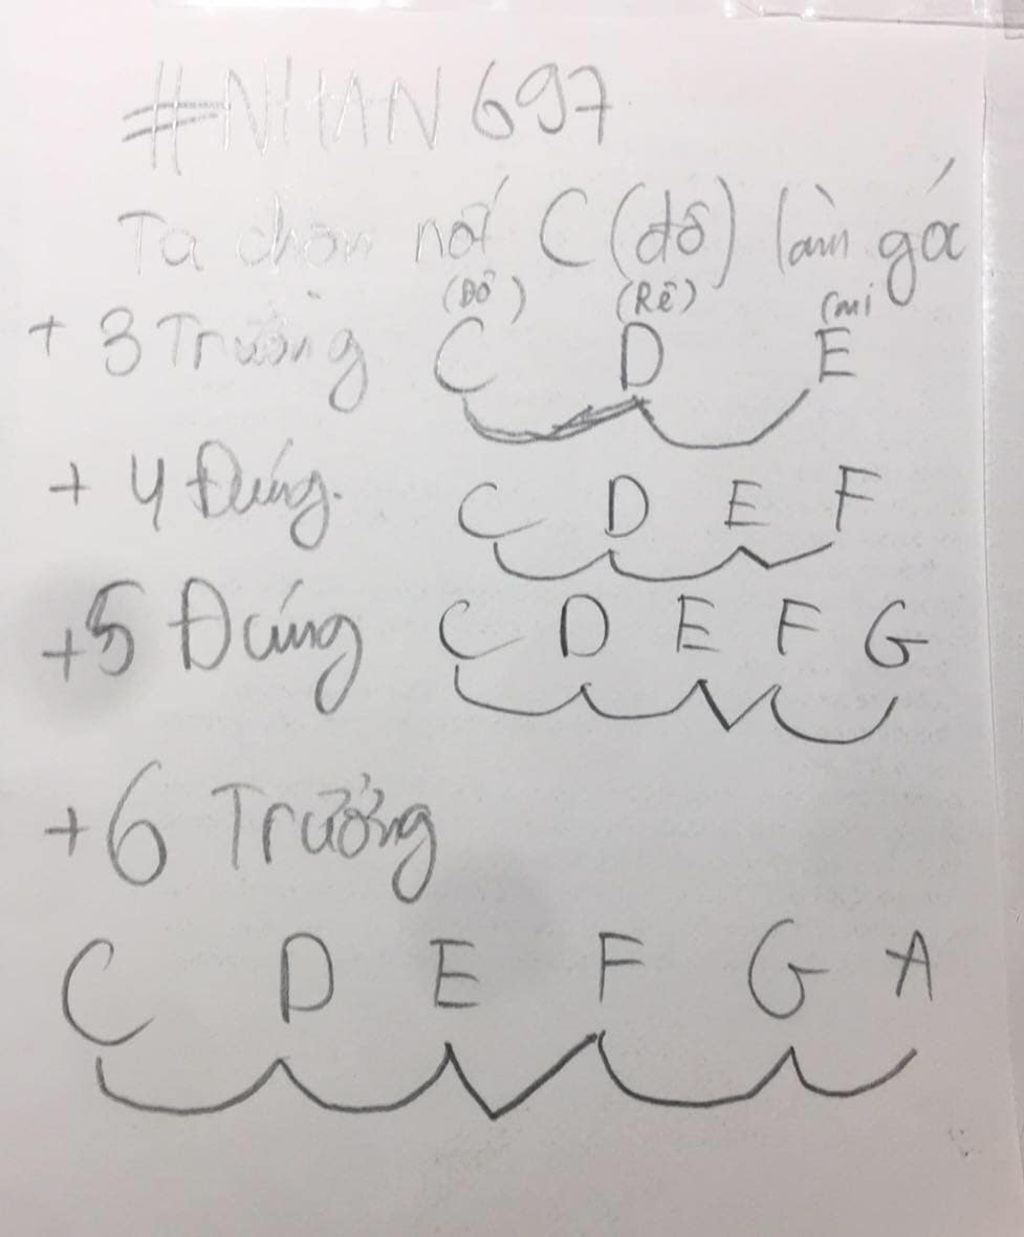 #NHAN697
Ta chọn nốt C (đô) làm gốc
(Đô) (Rê) (mi
+ 3 Trưởng C D E
+ 4 Đúng. C D E F
+5 Đúng C D E F G
+6 Trưởng
C D E F G A